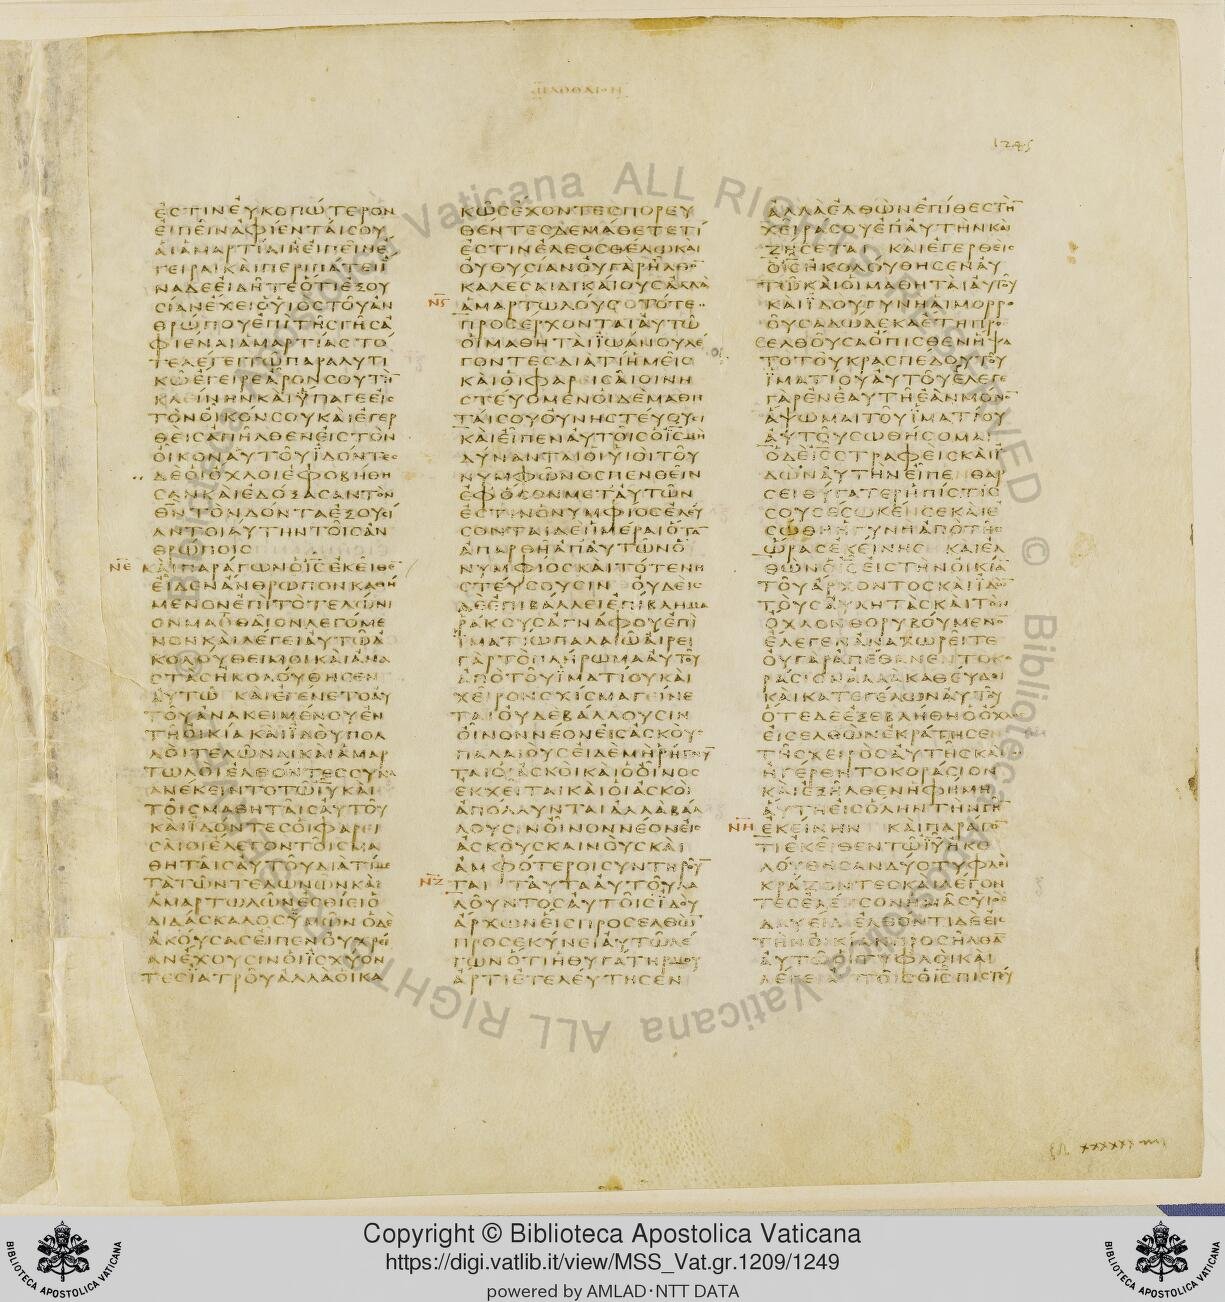 ΕϹΤΙΝΕΥΚΟΠΩΤΕΡΟΝ
ΕΙΠΕΙΝΑΦΙΕΝΤΑΙϹΟΥ
ΑΙΑΜΑΡΤΙΑΙΗΕΙΠΕΙΝΕ
ΓΕΙΡΑΙΚΑΙΠΕΡΙΠΑΤΕΙΪ
ΝΑΔΕΕΙΔΗΤΕΟΤΙΕΞΟΥ
ϹΙΑΝΕΧΕΙΟΥΙΟϹΤΟΥΑΝ
ΘΡΩΠΟΥΕΠΙΤΗϹΓΗϹΑ
ΦΙΕΝΑΙΑΜΑΡΤΙΑϹΤΟ
ΤΕΛΕΓΕΙΤΩΠΑΡΑΛΥΤΙ
ΚΩΕΓΕΙΡΕΑΡΟΝϹΟΥΤΗ̅
ΚΛΕΙΝΗΝΚΑΙΥΠΑΓΕΕΙϹ
ΤΟΝΟΙΚΟΝϹΟΥΚΑΙΕΓΕΡ
ΘΕΙϹΑΠΗΛΘΕΝΕΙϹΤΟΝ
ΟΙΚΟΝΑΥΤΟΥΪΔΟΝΤΕϹ
ΔΕΟΙΟΧΛΟΙΕΦΟΒΗΘΗ
ϹΑΝΚΑΙΕΔΟΞΑϹΑΝΤΟΝ
Θ̅Ν̅ΤΟΝΔΟΝΤΑΕΞΟΥϹΙ
ΑΝΤΟΙΑΥΤΗΝΤΟΙϹΑΝ
ΘΡΩΠΟΙϹ
Ν̅Ε̅ ΚΑΙΠΑΡΑΓΩΝΟΙ̅Ϲ̅ΕΚΕΙΘΕ̅
ΕΙΔΕΝΑΝΘΡΩΠΟΝΚΑΘΗ
ΜΕΝΟΝΕΠΙΤΟΤΕΛΩΝΙ
ΟΝΜΑΘΘΑΙΟΝΛΕΓΟΜΕ
ΝΟΝΚΑΙΛΕΓΕΙΑΥΤΩΑ
ΚΟΛΟΥΘΕΙΜΟΙΚΑΙΑΝΑ
ϹΤΑϹΗΚΟΛΟΥΘΗϹΕΝ
ΑΥΤΩ ΚΑΙΕΓΕΝΕΤΟΑΥ
ΤΟΥΑΝΑΚΕΙΜΕΝΟΥΕΝ
ΤΗΟΙΚΙΑΚΑΙΪΔΟΥΠΟΛ
ΛΟΙΤΕΛΩΝΑΙΚΑΙΑΜΑΡ
ΤΩΛΟΙΕΛΘΟΝΤΕϹϹΥΝΑ
ΑΝΕΚΕΙΝΤΟΤΩΙ̅Υ̅ΚΑΙ
ΤΟΙϹΜΑΘΗΤΑΙϹΑΥΤΟΥ
ΚΑΙΪΔΟΝΤΕϹΟΙΦΑΡΕΙ
ϹΑΙΟΙΕΛΕΓΟΝΤΟΙϹΜΑ
ΘΗΤΑΙϹΑΥΤΟΥΔΙΑΤΙΜΕ
ΤΑΤΩΝΤΕΛΩΝΩΝΚΑΙ
ΑΜΑΡΤΩΛΩΝΕϹΘΙΕΙΟ
ΔΙΔΑϹΚΑΛΟϹΥΜΩΝΟΔΕ
ΑΚΟΥϹΑϹΕΙΠΕΝΟΥΧΡΕΙ
ΑΝΕΧΟΥϹΙΝΟΙΪϹΧΥΟΝ
ΤΕϹΪΑΤΡΟΥΑΛΛΑΟΙΚΑ
ΚΩϹΕΧΟΝΤΕϹΠΟΡΕΥ
ΘΕΝΤΕϹΔΕΜΑΘΕΤΕΤΙ
ΕϹΤΙΝΕΛΕΟϹΘΕΛΩΚΑΙ
ΟΥΘΥϹΙΑΝΟΥΓΑΡΗΛΘΟ̅
ΚΑΛΕϹΑΙΔΙΚΑΙΟΥϹΑΛΛΑ
Ν̅Ϛ̅ ΑΜΑΡΤΩΛΟΥϹ ΤΟΤΕ
ΠΡΟϹΕΡΧΟΝΤΑΙΑΥΤΩ
ΟΙΜΑΘΗΤΑΙΪΩΑΝΟΥΛΕ
ΓΟΝΤΕϹΔΙΑΤΙΗΜΕΙϹ
ΚΑΙΟΙΦΑΡΕΙϹΑΙΟΙΝΗ
ϹΤΕΥΟΜΕΝΟΙΔΕΜΑΘΗ
ΤΑΙϹΟΥΟΥΝΗϹΤΕΥΟΥϹΙ
ΚΑΙΕΙΠΕΝΑΥΤΟΙϹΟΙ̅Ϲ̅ΜΗ
ΔΥΝΑΝΤΑΙΟΙΥΙΟΙΤΟΥ
ΝΥΜΦΩΝΟϹΠΕΝΘΕΙΝ
ΕΦΟϹΟΝΜΕΤΑΥΤΩΝ
ΕϹΤΙΝΟΝΥΜΦΙΟϹΕΛΕΥ
ϹΟΝΤΑΙΔΕΗΜΕΡΑΙΟΤΑ̅
ΑΠΑΡΘΗΑΠΑΥΤΩΝΟ
ΝΥΜΦΙΟϹΚΑΙΤΟΤΕΝΗ
ϹΤΕΥϹΟΥϹΙΝ ΟΥΔΕΙϹ
ΔΕΕΠΙΒΑΛΛΕΙΕΠΙΒΛΗΜΑ
ΡΑΚΟΥϹΑΓΝΑΦΟΥΕΠΙ
ΪΜΑΤΙΩΠΑΛΑΙΩΑΙΡΕΙ
ΓΑΡΤΟΠΛΗΡΩΜΑΑΥΤΟΥ
ΑΠΟΤΟΥΪΜΑΤΙΟΥΚΑΙ
ΧΕΙΡΟΝϹΧΙϹΜΑΓΕΙΝΕ
ΤΑΙΟΥΔΕΒΑΛΛΟΥϹΙΝ
ΟΙΝΟΝΝΕΟΝΕΙϹΑϹΚΟΥϹ
ΠΑΛΑΙΟΥϹΕΙΔΕΜΗΡΗΓΝΥ̅
ΤΑΙΟΙΑϹΚΟΙΚΑΙΟΟΙΝΟϹ
ΕΚΧΕΙΤΑΙΚΑΙΟΙΑϹΚΟΙ
ΑΠΟΛΛΥΝΤΑΙΑΛΛΑΒΑΛ
ΛΟΥϹΙΝΟΙΝΟΝΝΕΟΝΕΙϹ
ΑϹΚΟΥϹΚΑΙΝΟΥϹΚΑΙ
ΑΜΦΟΤΕΡΟΙϹΥΝΤΗΡΟΥ̅
Ν̅Ζ̅ ΤΑΙ ΤΑΥΤΑΑΥΤΟΥΛΑ
ΛΟΥΝΤΟϹΑΥΤΟΙϹΪΔΟΥ
ΑΡΧΩΝΕΙϹΠΡΟϹΕΛΘΩ̅
ΠΡΟϹΕΚΥΝΕΙΑΥΤΩΛΕ
ΓΩΝΟΤΙΗΘΥΓΑΤΗΡΜΟΥ
ΑΡΤΙΕΤΕΛΕΥΤΗϹΕΝ
ΑΛΛΑΕΛΘΩΝΕΠΙΘΕϹΤΗ̅
ΧΕΙΡΑϹΟΥΕΠΑΥΤΗΝΚΑΙ
ΖΗϹΕΤΑΙ ΚΑΙΕΓΕΡΘΕΙϹ
ΟΙ̅Ϲ̅ΗΚΟΛΟΥΘΗϹΕΝΑΥ
ΤΩΚΑΙΟΙΜΑΘΗΤΑΙΑΥΤΟΥ
ΚΑΙΪΔΟΥΓΥΝΗΑΙΜΟΡΡΟ
ΟΥϹΑΔΩΔΕΚΑΕΤΗΠΡΟ
ϹΕΛΘΟΥϹΑΟΠΙϹΘΕΝΗΨΑ
ΤΟΤΟΥΚΡΑϹΠΕΔΟΥΤΟΥ
ΪΜΑΤΙΟΥΑΥΤΟΥΕΛΕΓΕ
ΓΑΡΕΝΕΑΥΤΗΕΑΝΜΟΝΟ̅
ΑΨΩΜΑΙΤΟΥΪΜΑΤΙΟΥ
ΑΥΤΟΥϹΩΘΗϹΟΜΑΙ
ΟΔΕΙ̅Ϲ̅ϹΤΡΑΦΕΙϹΚΑΙΪ
ΔΩΝΑΥΤΗΝΕΙΠΕΝΘΑΡ
ϹΕΙΘΥΓΑΤΕΡΗΠΙϹΤΙϹ
ϹΟΥϹΕϹΩΚΕΝϹΕΚΑΙΕ
ϹΩΘΗΗΓΥΝΗΑΠΟΤΗϹ
ΩΡΑϹΕΚΕΙΝΗϹ ΚΑΙΕΛ
ΘΩΝΟΙ̅Ϲ̅ΕΙϹΤΗΝΟΙΚΙΑ̅
ΤΟΥΑΡΧΟΝΤΟϹΚΑΙΪΔΩ̅
ΤΟΥϹΑΥΛΗΤΑϹΚΑΙΤΟΝ
ΟΧΛΟΝΘΟΡΥΒΟΥΜΕΝΟ̅
ΕΛΕΓΕΝΑΝΑΧΩΡΕΙΤΕ
ΟΥΓΑΡΑΠΕΘΑΝΕΝΤΟΚΟ
ΡΑϹΙΟΝΑΛΛΑΚΑΘΕΥΔΕΙ
ΚΑΙΚΑΤΕΓΕΛΩΝΑΥΤΟΥ
ΟΤΕΔΕΕΞΕΒΛΗΘΗΟΟΧΛΟϹ
ΕΙϹΕΛΘΩΝΕΚΡΑΤΗϹΕΝ
ΤΗϹΧΕΙΡΟϹΑΥΤΗϹΚΑΙ
ΗΓΕΡΘΗΤΟΚΟΡΑϹΙΟΝ
ΚΑΙΕΞΗΛΘΕΝΗΦΗΜΗ
ΑΥΤΗΕΙϹΟΛΗΝΤΗΝΓΗ̅
Ν̅Η̅ ΕΚΕΙΝΗΝ ΚΑΙΠΑΡΑΓΟ̅
ΤΙΕΚΕΙΘΕΝΤΩΙ̅Υ̅ΗΚΟ
ΛΟΥΘΗϹΑΝΔΥΟΤΥΦΛΟΙ
ΚΡΑΖΟΝΤΕϹΚΑΙΛΕΓΟΝ
ΤΕϹΕΛΕΗϹΟΝΗΜΑϹΥΙΟϹ
ΔΑΥΕΙΔ ΕΛΘΟΝΤΙΔΕΕΙϹ
ΤΗΝΟΙΚΙΑΝΠΡΟϹΗΛΘΑ̅
ΑΥΤΩΟΙΤΥΦΛΟΙΚΑΙ
ΛΕΓΕΙΑΥΤΟΙϹΟΙ̅Ϲ̅ΠΙϹΤΕΥ
Copyright © Biblioteca Apostolica Vaticana
https://digi.vatlib.it/view/MSS_Vat.gr.1209/1249
powered by AMLAD·NTT DATA